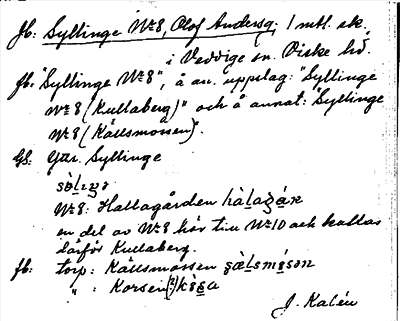 Jb: Syllinge No 8, Olof Andersg: 1 mtl. sk.
i Veddige sn. Viske hd.
Jb: "Syllinge No 8", å an. upplag: "Syllinge
No 8 (Kullaberg)" och å annat: "Syllinge
No 8 (Källsmossen)".
GS: Yttr. Syllinge
No 8: Hallagården
en del av No 8 hör till No 10 och kallas
därför Kullaberg.
Jb: torp: Källsmossen
" : Korsen
J. Kalén